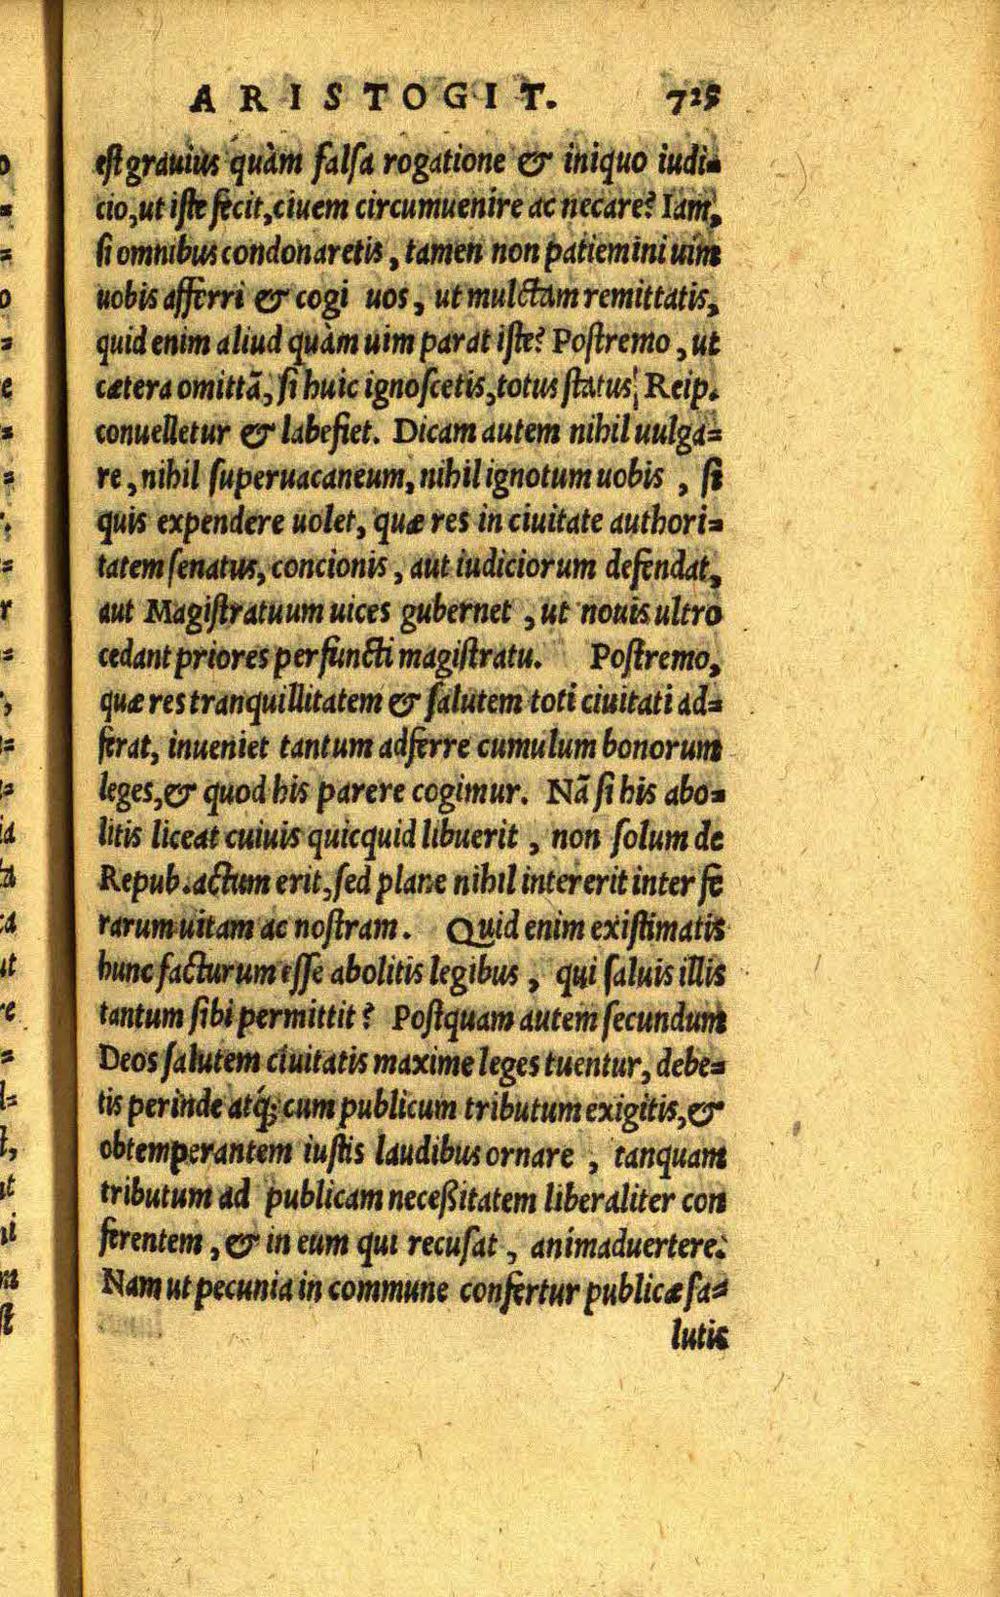 ARISTOGIT. 725
est grauius quàm falsa rogatione & iniquo iudi=
cio, ut iste fecit, ciuem circumuenire ac necare? Iam,
si omnibus condonaretis, tamen non patiemini uim
uobis afferri & cogi uos, ut mulctam remittatis,
quid enim aliud quàm uim parat iste? Postremo, ut
cætera omittã, si huic ignoscetis, totus status Reip.
conuelletur & labefiet. Dicam autem nihil uulga=
re, nihil superuacaneum, nihil ignotum uobis, si
quis expendere uolet, quæ res in ciuitate authori=
tatem senatus, concionis, aut iudiciorum defendat,
aut Magistratuum uices gubernet, ut nouis ultro
cedant priores perfuncti magistratu. Postremo,
quæ res tranquillitatem & salutem toti ciuitati ad=
ferat, inueniet tantum adferre cumulum bonorum
leges, & quod his parere cogimur. Nã si his abo=
litis liceat cuiuis quicquid libuerit, non solum de
Repub. actum erit, sed plane nihil intererit inter fe
rarum uitam ac nostram. Quid enim existimatis
hunc facturum esse abolitis legibus, qui saluis illis
tantum sibi permittit? Postquam autem secundum
Deos salutem ciuitatis maxime leges tuentur, debe=
tis perinde atq́; cum publicum tributum exigitis, &
obtemperantem iustis laudibus ornare, tanquam
tributum ad publicam neceßitatem liberaliter con
ferentem, & in eum qui recusat, animaduertere.
Nam ut pecunia in commune confertur publicæ sa=
lutis